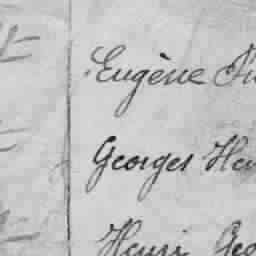 Eugène
Georges Hen
Henri Geo